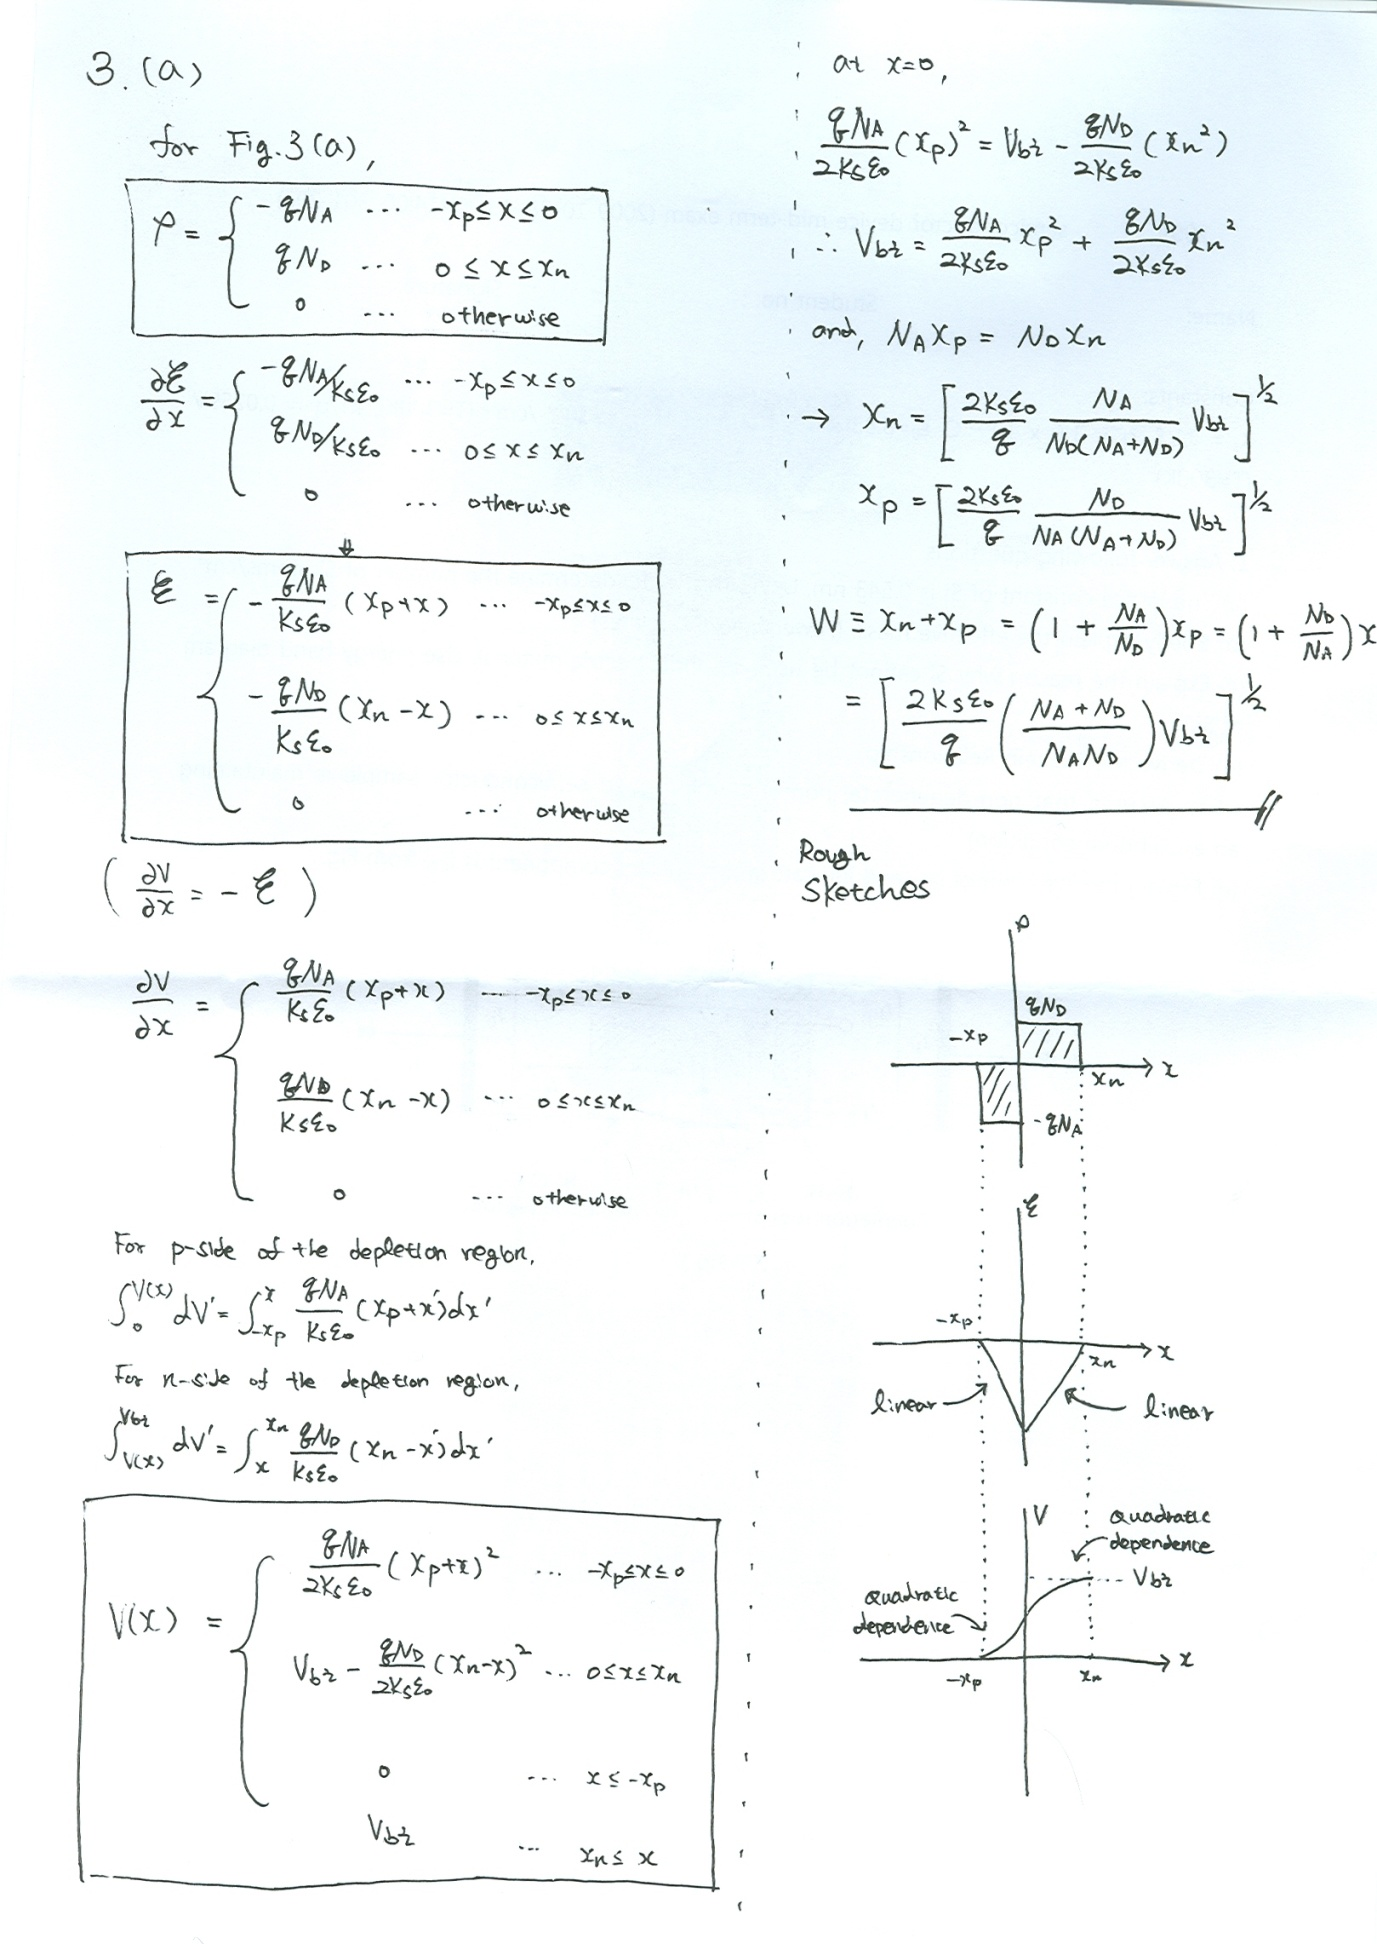 3. (a)
for Fig. 3(a),
ρ = { -qNA ... -xp ≤ x ≤ 0
qND ... 0 ≤ x ≤ xn
0 ... otherwise
∂ℰ/∂x = { -qNA/Ksε0 ... -xp ≤ x ≤ 0
qND/Ksε0 ... 0 ≤ x ≤ xn
0 ... otherwise
⇓
ℰ = { - qNA/Ksε0 (xp+x) ... -xp ≤ x ≤ 0
- qND/Ksε0 (xn-x) ... 0 ≤ x ≤ xn
0 ... otherwise
( ∂V/∂x = - ℰ )
∂V/∂x = { qNA/Ksε0 (xp+x) ... -xp ≤ x ≤ 0
qND/Ksε0 (xn-x) ... 0 ≤ x ≤ xn
0 ... otherwise
For p-side of the depletion region,
∫_0^V(x) dV' = ∫_-xp^x qNA/Ksε0 (xp+x')dx'
For n-side of the depletion region,
∫_V(x)^Vbi dV' = ∫_x^xn qND/Ksε0 (xn-x')dx'
V(x) = { qNA/2Ksε0 (xp+x)² ... -xp ≤ x ≤ 0
Vbi - qND/2Ksε0 (xn-x)² ... 0 ≤ x ≤ xn
0 ... x ≤ -xp
Vbi ... xn ≤ x
at x=0,
qNA/2Ksε0 (xp)² = Vbi - qND/2Ksε0 (xn²)
∴ Vbi = qNA/2Ksε0 xp² + qND/2Ksε0 xn²
and, NA xp = ND xn
→ xn = [ 2Ksε0/q NA/ND(NA+ND) Vbi ]^1/2
xp = [ 2Ksε0/q ND/NA(NA+ND) Vbi ]^1/2
W ≡ xn+xp = (1 + NA/ND)xp = (1 + ND/NA)x
= [ 2Ksε0/q ( NA+ND/NAND ) Vbi ]^1/2
Rough
Sketches
ρ
qND
-xp
xn
x
-qNA
ℰ
-xp
xn
x
linear
linear
V
quadratic
dependence
Vbi
quadratic
dependence
-xp
xn
x